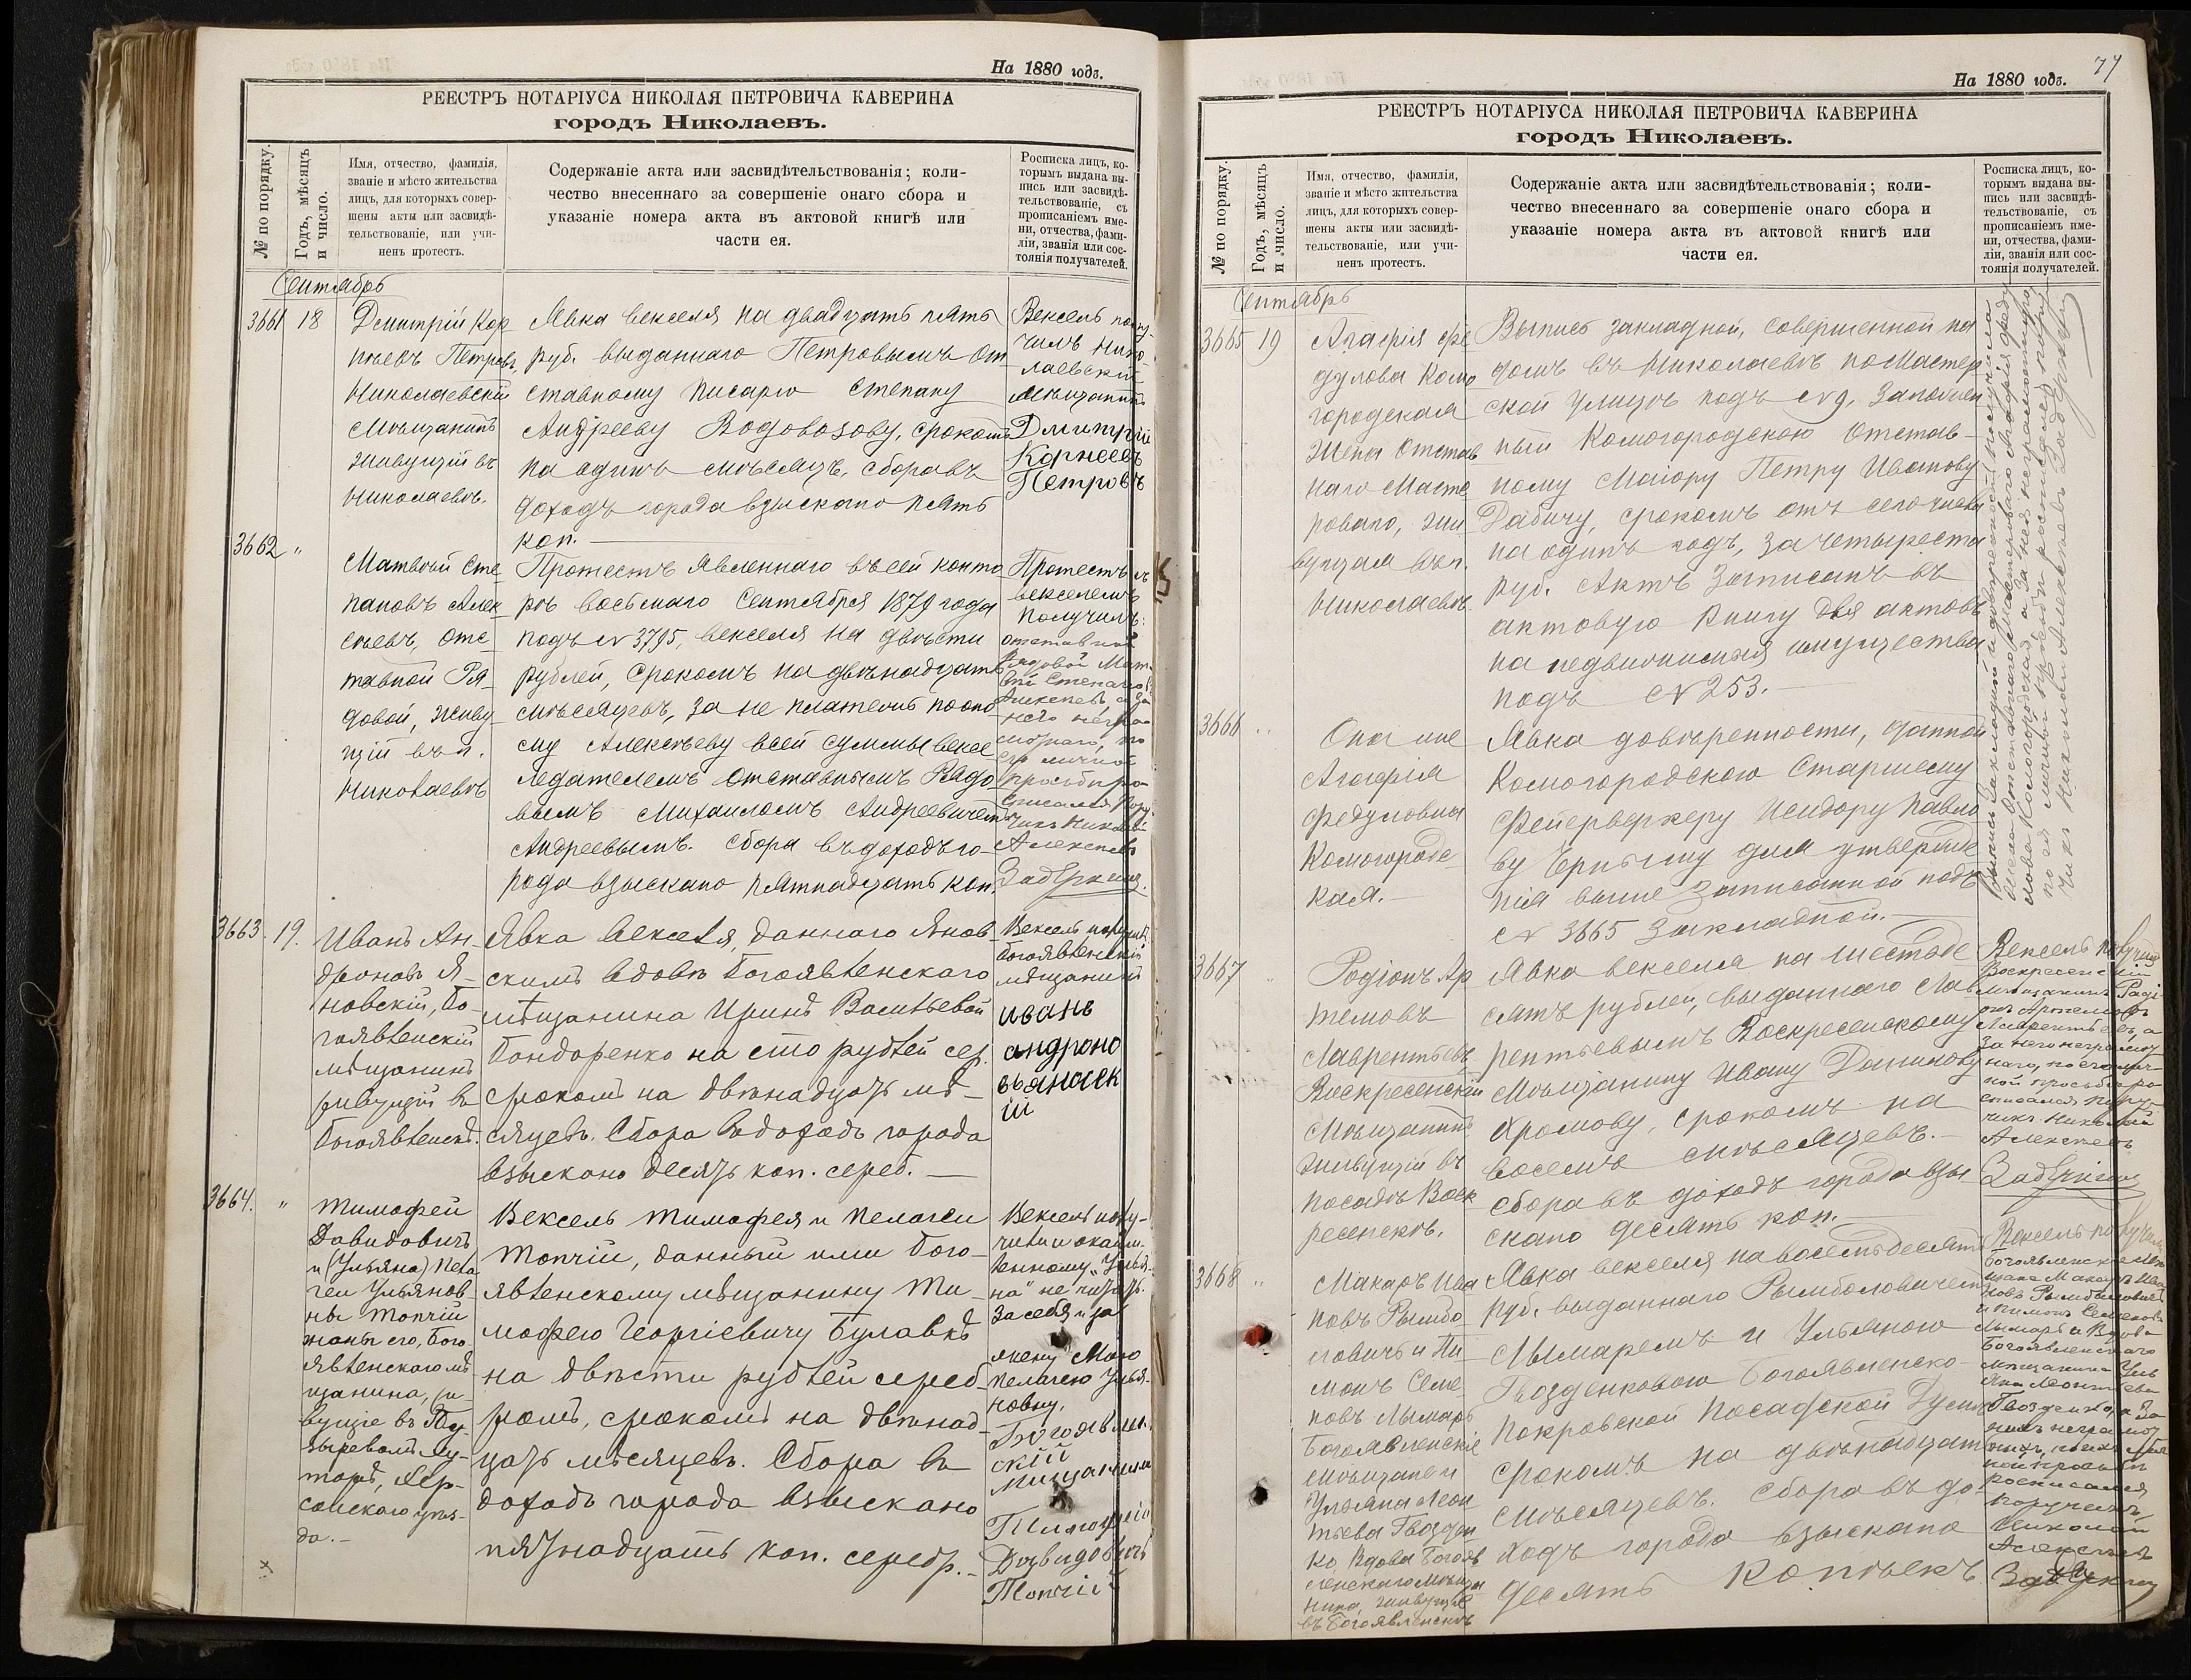 На 1880 годъ.
РЕЕСТРЪ НОТАРІУСА НИКОЛАЯ ПЕТРОВИЧА КАВЕРИНА
городъ Николаевъ.
№ по порядку.
Годъ, мѣсяцъ
и число.
Имя, отчество, фамилія,
званіе и мѣсто жительства
лицъ, для которыхъ совер-
шены акты или засвидѣ-
тельствованіе, или учи-
ненъ протестъ.
Содержаніе акта или засвидѣтельствованія; коли-
чество внесеннаго за совершеніе онаго сбора и
указаніе номера акта въ актовой книгѣ или
части ея.
Росписка лицъ, ко-
торымъ выдана вы-
пись или засвидѣ-
тельствованіе, съ
прописаніемъ име-
ни, отчества, фами-
ліи, званія или сос-
тоянія получателей.
Сентябрь
3661 18
Дмитрій Кор
нѣевъ Петровъ,
Николаевскій
Мѣщанинъ
живущій въ
Николаевѣ.
Явка векселя на двадцать пять
руб. выданнаго Петровымъ От
ставному писарю Степану
Андрееву Водовозову, срокомъ
на одинъ мѣсяцъ, сбора въ
доходъ города взыскано пять
коп.
Вексель полу-
чилъ Нико
лаевскій
мѣщанинъ
Дмитрій
Корнеевъ
Петровъ
3662 "
Матвѣй Сте
пановъ Алек
сѣевъ, отс
тавной Ря-
довой, живу-
щій въ г.
Николаевѣ
Протестъ явленнаго въ сей конто
рѣ восьмаго Сентября 1879 года
подъ № 3795, векселя на двѣсти
рублей, срокомъ на двѣнадцать
мѣсяцевъ, за не платежъ по оно
му Алексѣеву всей суммы вексе
ледателемъ отставнымъ Рядо
вымъ Михаиломъ Андреевичемъ
Андреевымъ. Сбора въ доходъ го-
рода взыскано пятнадцать коп.
Протестъ съ
векселемъ
получилъ:
отставной
Рядовой Мат-
вѣй Степанов
Алексѣевъ, а за
него негра-
мотнаго, по
его личной
просьбѣ ро
списался Пору
чикъ Николай
Алексѣевъ
Задеркинъ.
3663. 19.
Иванъ Ан-
дроновъ Я-
новскій, Бо-
гоявленскій
мѣщанинъ
живущій въ
Богоявленскѣ.
Явка векселя, даннаго Янов-
скимъ вдовѣ Богоявленскаго
мѣщанина Иринѣ Васильевой
Бондаренко на сто рублей сер.
срокомъ на двѣнадцать мѣ-
сяцевъ. Сбора въ доходъ города
взыскано десять коп. сереб.
Вексель получилъ
богоявленскій
мѣщанинъ
иванъ
андроно
въ яновск
ій
3664. "
Тимофей
Давидовичъ
и (Ульяна) Пела
геи Ульянов-
ны Топчій
жены его, Бого
явленскаго мѣ
щанина, жи
вущіе въ
торѣ, Хер-
сонскаго уѣз-
да.
Вексель Тимофея и Пелагеи
Топчій, данный ими Бого-
явленскому мѣщанину Ти-
мофею Георгіевичу Булавкѣ
на двѣсти рублей сереб-
ромъ, срокомъ на двѣнад-
цать мѣсяцевъ. Сбора въ
доходъ города взыскано
пятнадцать коп. серебр.
Вексель полу-
чили
"Улья-
на" не читать.
За себя и за
жену мою
Пелагею Улья-
новну,
Богоявлен
скій
мищанинъ
Тимофій
Давидовичъ
Топчій
77
На 1880 годъ.
РЕЕСТРЪ НОТАРІУСА НИКОЛАЯ ПЕТРОВИЧА КАВЕРИНА
городъ Николаевъ.
№ по порядку.
Годъ, мѣсяцъ
и число.
Имя, отчество, фамилія,
званіе и мѣсто жительства
лицъ, для которыхъ совер-
шены акты или засвидѣ-
тельствованіе, или учи-
ненъ протестъ.
Содержаніе акта или засвидѣтельствованія; коли-
чество внесеннаго за совершеніе онаго сбора и
указаніе номера акта въ актовой книгѣ или
части ея.
Росписка лицъ, ко-
торымъ выдана вы-
пись или засвидѣ-
тельствованіе, съ
прописаніемъ име-
ни, отчества, фами-
ліи, званія или сос-
тоянія получателей.
Сентябрь
3665 19
Агафія Фе
дулова Комо
городская
жена отстав
наго Масте
роваго, жи
вущая въ г.
Николаевѣ.
Выпись закладной, совершенной на
домъ въ Николаевѣ по Мастер
ской улицѣ подъ № 9, заложен
ный Комогородскою отстав-
ному Маіору Петру Иванову
Дабичу, срокомъ отъ сего числа
на одинъ годъ, за четыреста
руб. Актъ записанъ въ
актовую книгу для актовъ
на недвижимыя имущества
подъ № 253.
Выпись закладной и довѣренность получила
жена отставнаго мастероваго Агафія Феду
лова Комогородская, а за нея неграмотную,
по ея личной просьбѣ росписался пору
чикъ Николай Алексѣевъ Задеркинъ
3666 "
Она же
Агафія
Федуловна
Комогородс
кая.
Явка довѣренности, данной
Комогородскою Старшему
Фейерверкеру Исидору Павло
ву Чернышу для утвержде
нія выше записанной подъ
№ 3665 Закладной.
3667 "
Родіонъ Ар
темовъ
Лаврентьевъ
Воскресенскій
Мѣщанинъ
живущій въ
посадѣ Воск
ресенскѣ.
Явка векселя на шестьде
сятъ рублей, выданнаго Лав
рентьевымъ Воскресенскому
Мѣщанину Ивану Данилову
Хромову, срокомъ на
восемь мѣсяцевъ.
Сбора въ доходъ города взы
скано десять коп.
Вексель получилъ
Воскресенскій
Мѣщанинъ Родi-
онъ Артемовъ
Лаврентьевъ, а
за него неграмот
наго, по его лич-
ной просьбѣ ро
списался Пору-
чикъ Николай
Алексѣевъ
Задеркинъ
3668 "
Макаръ Ива
новъ Рымбо
ловичъ и Пи-
монъ Семе
новъ Лымарь
Богоявленскіе
мѣщане и
Ульяна Леон
тьева Гвозден
ко, вдова Богояв
ленскаго мѣща
нина, живущіе
въ Богоявленскѣ
Явка векселя на восемьдесятъ
руб. выданнаго Рымболовичемъ
Лымаремъ и Ульяною
Гвозденковою Богоявленско-
Покровской Посадской Думѣ
срокомъ на двѣнадцать
мѣсяцевъ. Сбора въ до-
ходъ города взыскано
десять копѣекъ.
Вексель получили
Богоявленскіе мѣ
щане Макаръ Ива
новъ Рымболовичъ
и Пимонъ Семеновъ
Лымарь и Вдова
Богоявленскаго
мѣщанина Уль
яна Леонтьева
Гвозденко, а за
нихъ неграмот
ныхъ, по ихъ лич
ной просьбѣ
росписался
Поручикъ
Николай
Алексѣевъ
Задеркинъ